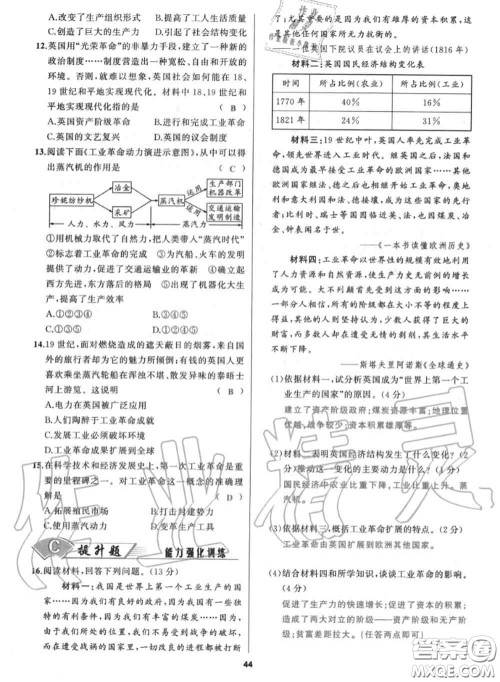 A.改变了生产组织形式
B.提高了工人生活质量
C.创造了巨大的生产力
D.引起了社会结构变化
12.英国用“光荣革命”的非暴力手段,建立了一种新的
政治制度……制度营造出一种宽松、自由和开放的
环境。否则,就难以想象,英国社会何如能在18、
19世纪和平地实现现代化。材料中18、19世纪和
平地实现现代化指的是 ( B )
A.英国资产阶级革命
B.英国工业革命
C.英国的文艺复兴
D.英国的议会制度
13.阅读下面《工业革命动力演进示意图》,从中可以得
出蒸汽机的作用是 ( B )
珍妮纺纱机
冶金
采矿
蒸汽机
运用
生产部门机器改革
运用
交通运输发明制造
人力、水力、风力
蒸汽力
①用机械力取代了自然力,把人类带入“蒸汽时代”
②标志着工业革命的完成 ③为汽船、火车的发明
提供了动力,促进了交通运输业的革新 ④确立起
西方先进,东方落后的格局 ⑤提高了生产力,促进
了经济发展
A.①②③⑤
B.①③④⑤
C.①③④
D.①③⑤
14.19世纪,面对燃烧造成的遮天蔽日的烟雾,来自国
外的旅行者却为它的魅力所倾倒;有钱的英国人更
喜欢乘坐蒸汽轮船在浑浊不堪、散发异味的泰晤士
河上游览。这说明 ( B )
A.电力在英国被广泛应用
B.人们陶醉于工业革命成就
C.发展工业必须破坏环境
D.工业革命成果扩展到全球
15.在科学技术和经济发展史上,第一次工业革命是重
要的里程碑之一。对工业革命这一概念的准确理
解是 ( D )
A.拓展殖民市场
B.打击封建势力
C.使用蒸汽动力
D.变革生产工具
C 提升题 能力强化训练
16.阅读材料,回答下列问题。(13分)
材料一:我国是世界上第一个工业生产的国家
……因为我们有良好的政府,因为我国有一些独
有的有利条件,因为我们有丰富的煤炭……因为
由于我们所处的地理位置,免遭了战争的破坏,而
在遭受战祸的国家里,一切改良的进程都被打断
了……因为我国可以使用的资本,因为从
其他任何国家所无力支持的。
——一位英国下院议员在议会上的讲话(1816年)
材料二:英国国民经济结构变化表
时间 所占比例(农业) 所占比例(工业)
1770年 40% 16%
1821年 24% 31%
材料三:19世纪中叶,英国人率先完成工业革
命,领先世界进入工业社会。继英国之后,法国和
德国成为最早接受工业革命的欧洲国家……其他
欧洲国家继法、德之后,亦或快或慢进入,奥地利
和意大利利用法、德技术,接续成为这些国家的先行
者;比利时、瑞士等国面临近英、法,也因煤炭、冶
金、钟表闻名于世。
——《一本书读懂欧洲历史》
材料四:工业革命以世界性的规模有效地利用
了人力资源和自然资源,使生产力史无前例的增长
成为可能。大不列颠首先受到这方面的影响……
一部分人相信,所有的阶级都在大小不等的程度上
得益,其他的人则坚持认为,少数人获得了巨大的
财富,而多数人却在遭受无情的剥削,其生活水平
不断下降。
——斯塔夫里阿诺斯《全球通史》
(1)依据材料一,试分析英国成为“世界上第一个工
业生产的国家”的原因。(3分)
建立了资产阶级政府;煤炭资源丰富;地理位置
优越,战争较少;资本积累雄厚等。
(2)材料二表明英国经济结构发生了什么变化?(2
分)推动这一变化的主要动力是什么?(2分)
国民经济中农业比重下降,工业比重上升。蒸
汽机。
(3)依据材料三,概括工业革命的扩展。(2分)
工业革命由英国扩展到欧洲其他国家。
(4)结合材料四和所学知识,谈谈工业革命的影响。
(4分)
促进了生产力的快速增长;促进了资本的积累;
造成了两大对立的阶级——资产阶级和无产阶
级;贫富差距拉大。(任答两点即可)
44